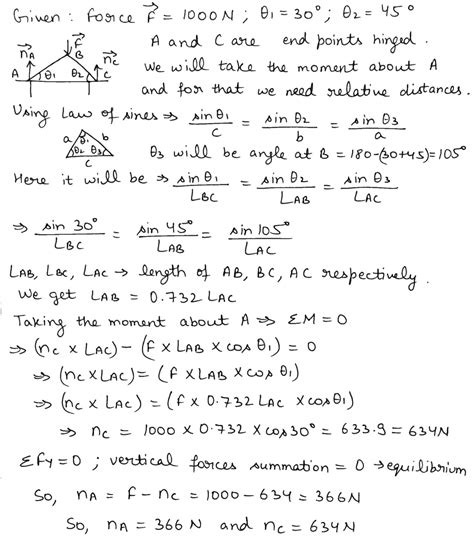 Given : Force F⃗ = 1000N ; θ1 = 30° ; θ2 = 45°
A and C are end points hinged.
We will take the moment about A
and for that we need relative distances.
n⃗A F⃗ B n⃗C
A θ1 θ2 C
Using Law of sines ⇒ sinθ1/c = sinθ2/b = sinθ3/a
a θ1 b
θ2 θ3
c
θ3 will be angle at B = 180-(30+45)=105°
Here it will be ⇒ sinθ1/LBC = sinθ2/LAB = sinθ3/LAC
⇒ sin 30°/LBC = sin 45°/LAB = sin 105°/LAC
LAB, LBC, LAC → length of AB, BC, AC respectively.
We get LAB = 0.732 LAC
Taking the moment about A ⇒ ΣM=0
⇒ (nc × LAC) - (F × LAB × cos θ1) = 0
⇒ (nc × LAC) = (F × LAB × cos θ1)
⇒ (nc × LAC) = (F × 0.732 LAC × cosθ1)
⇒ nc = 1000 × 0.732 × cos30° = 633.9 = 634N
ΣFy=0 ; vertical forces summation = 0 → equilibrium
So, nA = F - nc = 1000-634 = 366N
So, nA = 366 N and nc = 634N